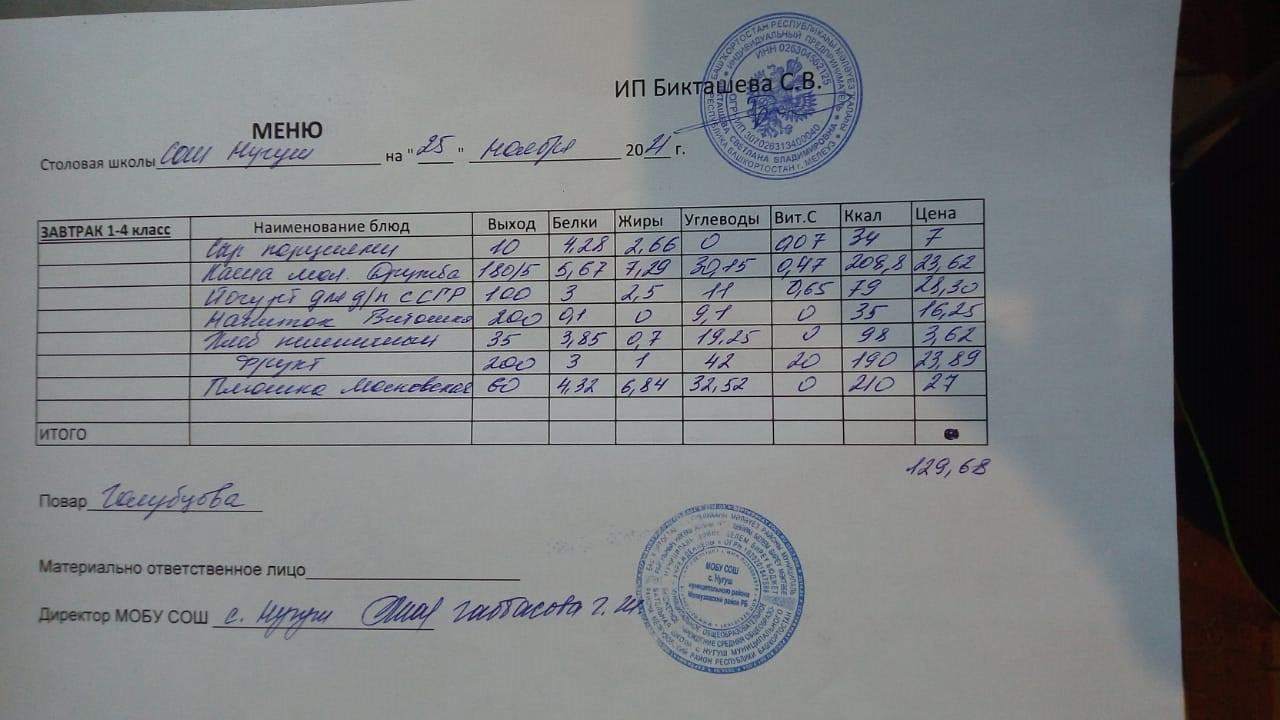 ИП Бикташева С.В.
МЕНЮ
Столовая школы СОШ Нугуш на "25" ноября 2021 г.
ЗАВТРАК 1-4 класс Наименование блюд Выход Белки Жиры Углеводы Вит.С Ккал Цена
Сыр порциями 10 4,28 2,66 0 0,07 34 7
Каша мол. Дружба 180/5 5,67 7,29 30,15 0,47 208,8 23,62
Йогурт для д/п СССР 100 3 2,5 11 0,65 79 28,30
Напиток Витошка 200 0,1 0 9,1 0 35 16,25
Хлеб пшеничный 35 3,85 0,7 19,25 0 98 3,62
Фрукт 200 3 1 42 20 190 23,89
Плюшка Московская 60 4,32 6,84 32,52 0 210 27
ИТОГО
129,68
Повар Голубцова
Материально ответственное лицо
Директор МОБУ СОШ с. Нугуш Гатбасова Г. И.
ИНДИВИДУАЛЬНЫЙ ПРЕДПРИНИМАТЕЛЬ
БИКТАШЕВА СВЕТЛАНА ВЛАДИМИРОВНА
РЕСПУБЛИКА БАШКОРТОСТАН г. МЕЛЕУЗ
МОБУ СОШ
с. Нугуш
муниципального района
Мелеузовский район РБ